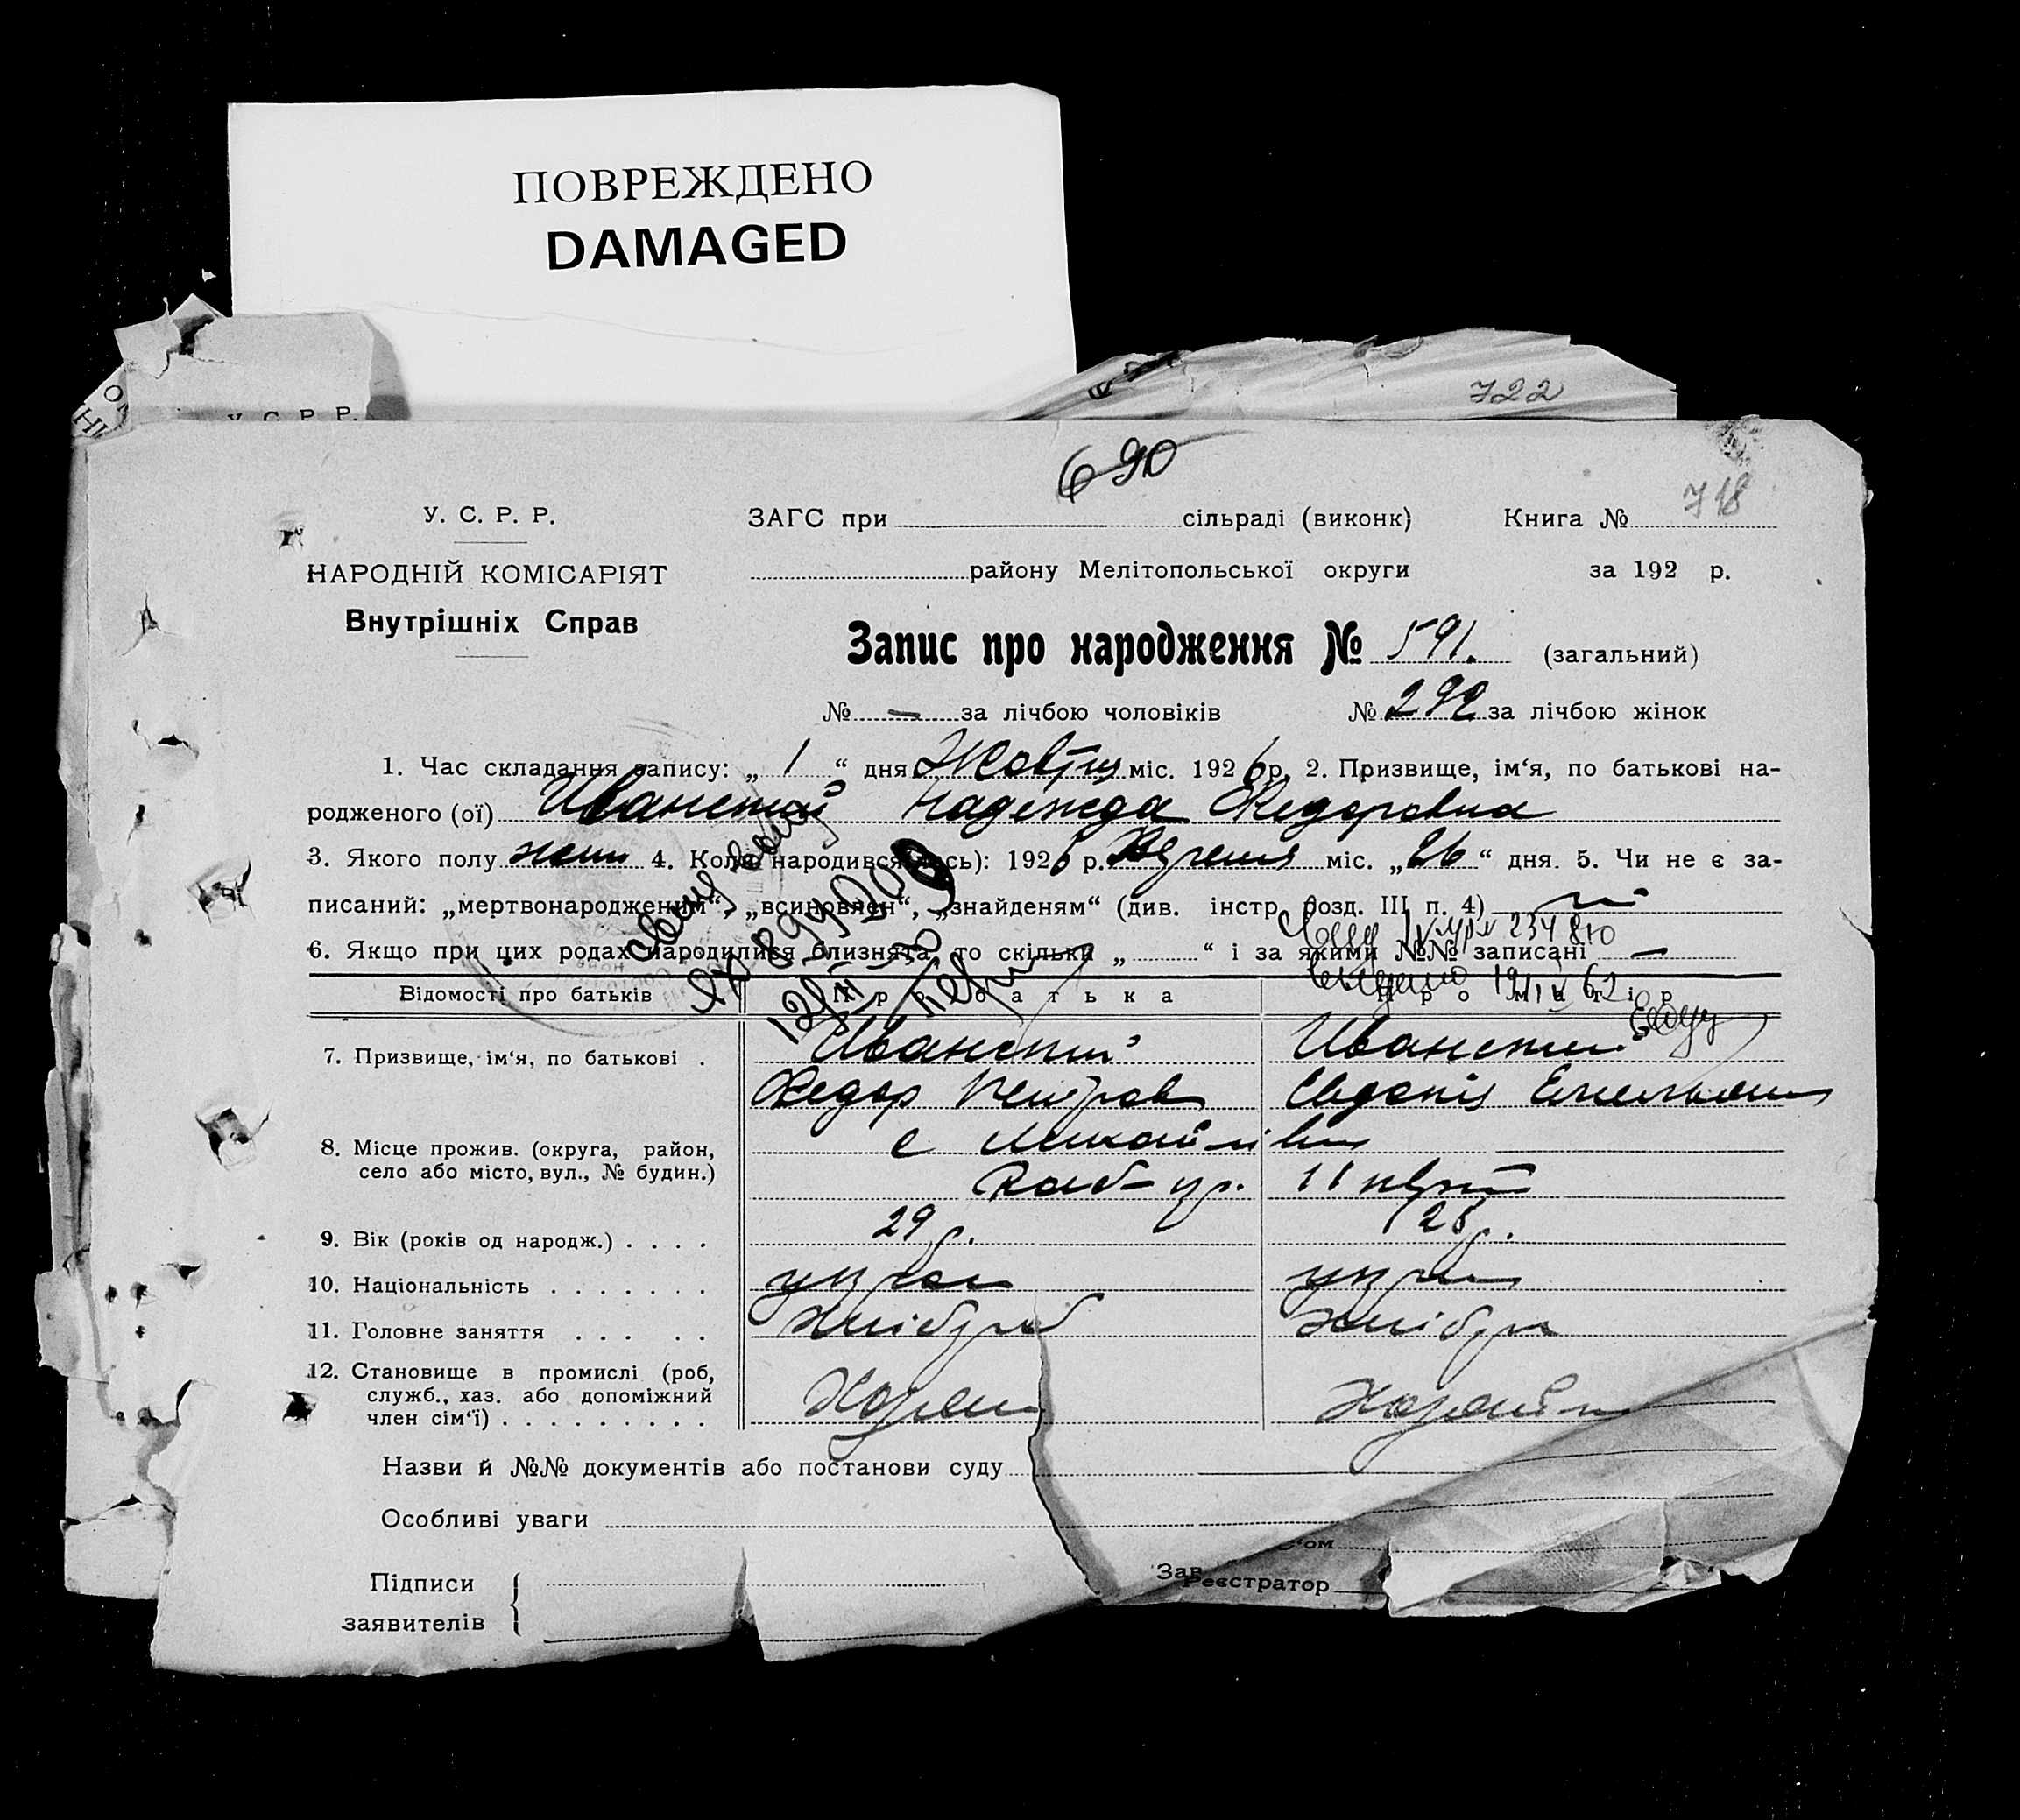 ПОВРЕЖДЕНО
DAMAGED
722
У. С. Р. Р.
690
718
У. С. Р. Р.
ЗАГС при сільраді (виконк) Книга №
НАРОДНІЙ КОМІСАРІЯТ
району Мелітопольської округи за 192 р.
Внутрішніх Справ
Запис про народження № 591. (загальний)
№ — за лічбою чоловіків № 292 за лічбою жінок
1. Час складання запису: „ 1 “ дня Жовтня міс. 1926 р. 2. Призвище, ім‘я, по батькові на-
родженого (ої) Иванский Надежда Федоровна
3. Якого полу жин 4. Коли народився(лась): 1926 р. міс. „26“ дня. 5. Чи не є за-
писаний: „мертвонародженим“, „всиновлен“, „знайденям“ (див. інстр. розд. III п. 4) ні
6. Якщо при цих родах народилися близнята, то скільки „ “ і за якими №№ записані —
Відомості про батьків Про батька Про матір
7. Призвище, ім‘я, по батькові . Иванский Иванский
Федор Петров Евдокія Емельян
8. Місце прожив. (округа, район,
село або місто, вул., № будин.)
с
9. Вік (років од народж.) . . . . 29 р. 28 р.
10. Національність . . . . . . . укра укра
11. Головне заняття . . . . . хлібороб хлібор
12. Становище в промислі (роб,
служб., хаз. або допоміжний
член сім‘ї) . . . . . . . . .
Назви й №№ документів або постанови суду
Особливі уваги
Підписи
заявителів
Зав ‘ом
Реєстратор